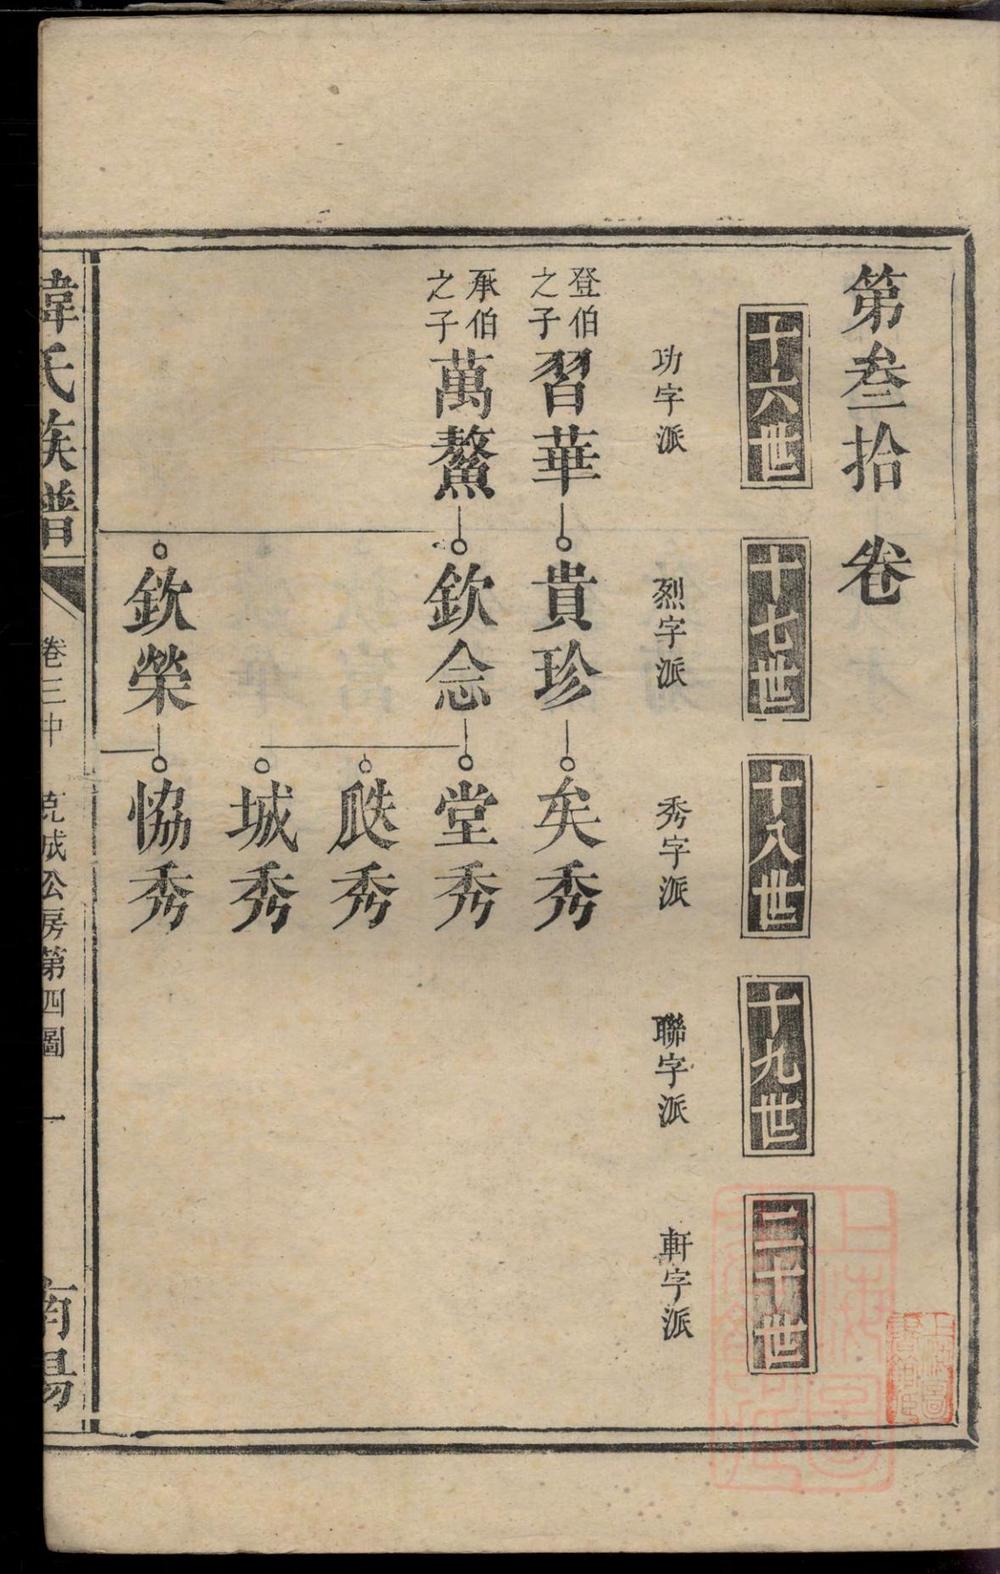 第叁拾卷
十六世
十七世
十八世
十九世
二十世
功字派
烈字派
秀字派
聯字派
軒字派
登伯之子
習華
貴珍
矣秀
承伯之子
萬鰲
欽念
堂秀
瓞秀
城秀
欽榮
恊秀
韓氏族譜
卷三中
克成公房第四圖
一
南陽